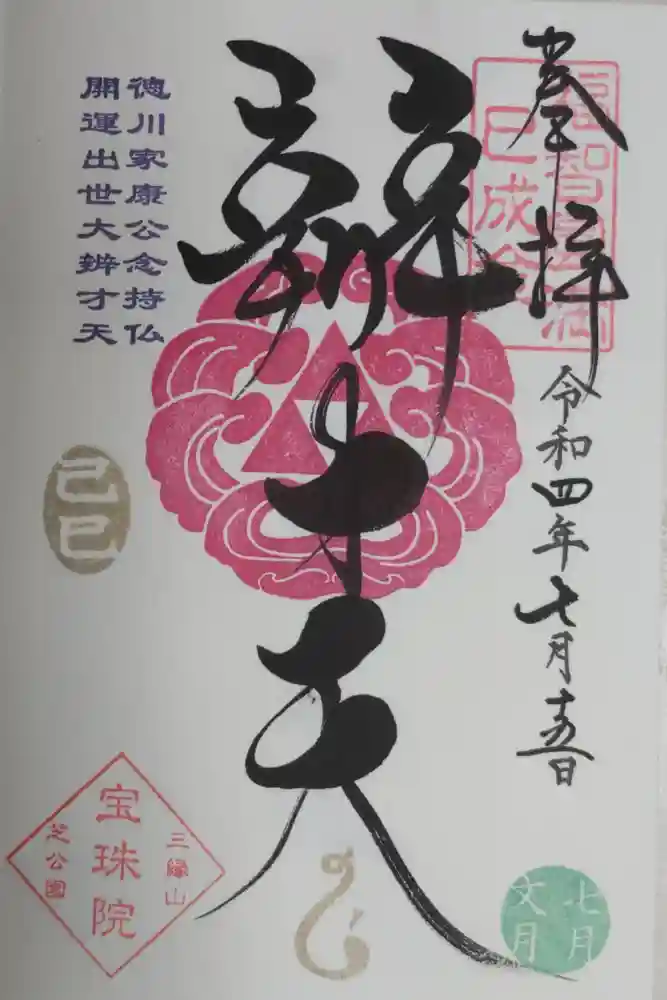 奉拝
巳成金
令和四年七月十五日
辯才天
徳川家康公念持仏
開運出世大辨才天
己巳
三縁山
宝珠院
芝公園
七月
文月